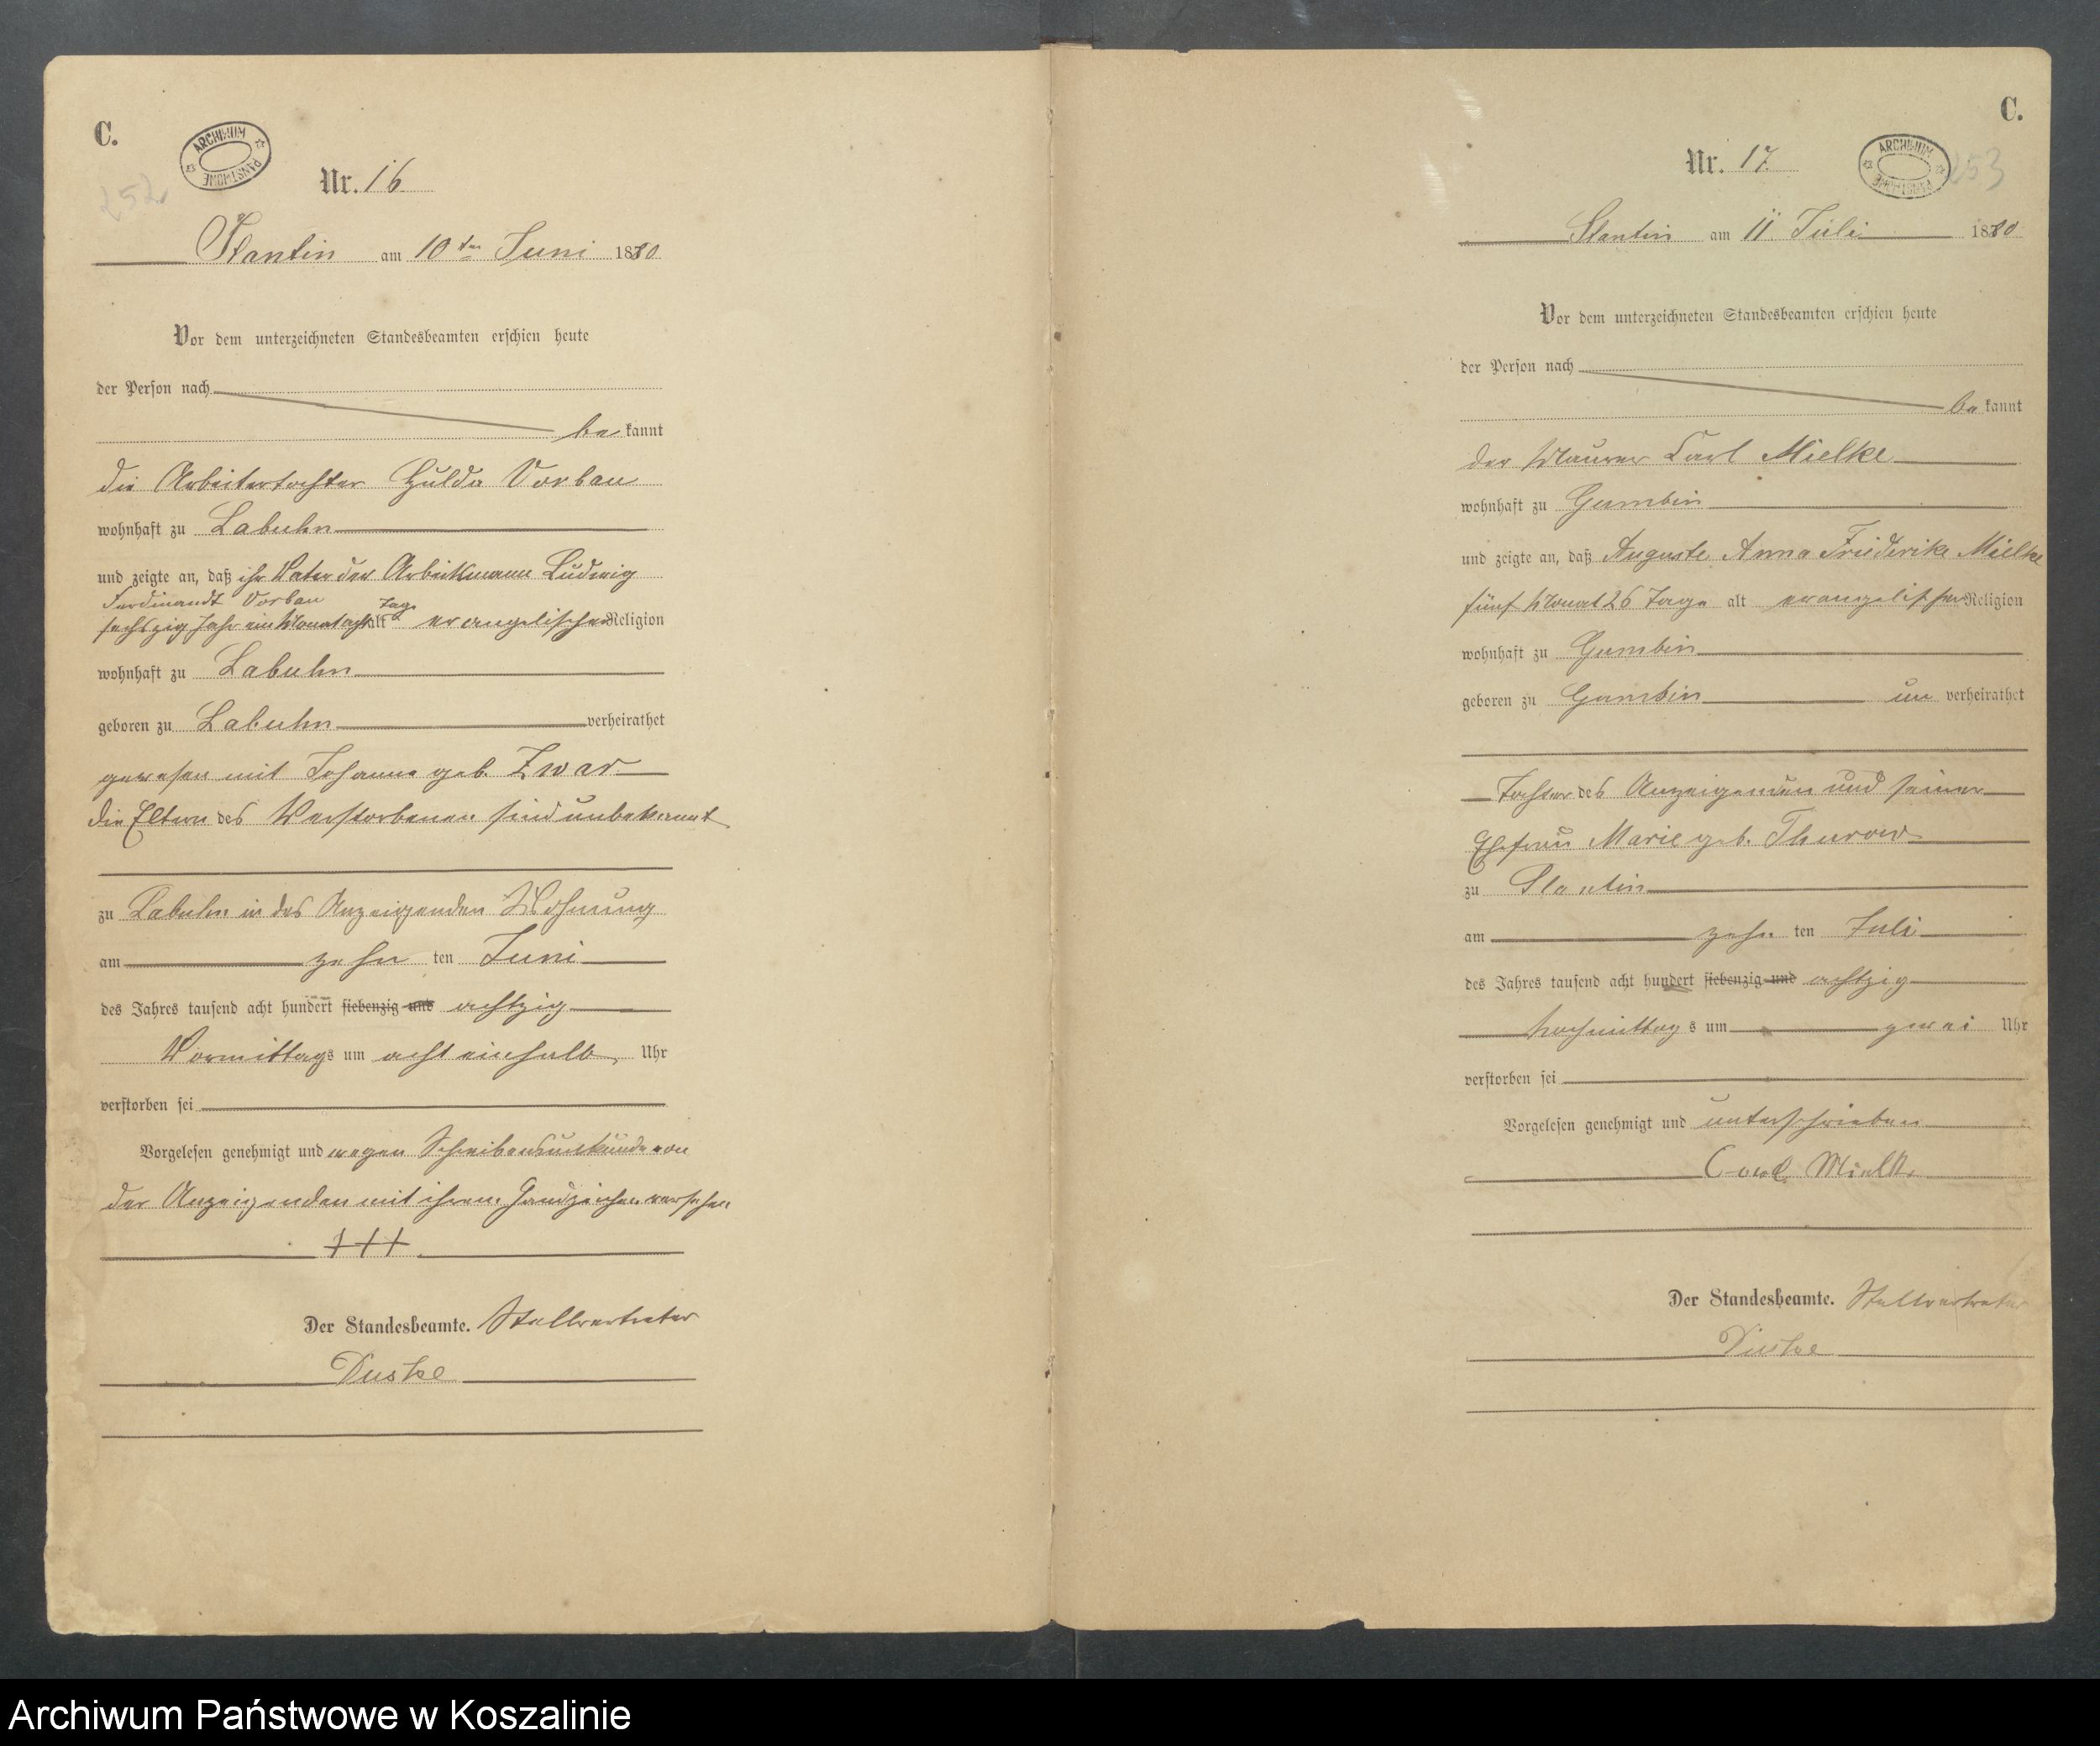 C.
ARCHIWUM PAŃSTWOWE
252
Nr. 16
Stantin am 10ten Juni 1880
Vor dem unterzeichneten Standesbeamten erschien heute
der Person nach
bekannt
die Arbeitertochter Hulda Vorbau
wohnhaft zu Labuhn
und zeigte an, daß ihr Vater der Arbeitsmann Ludwig
Ferdinandt Vorbau
sechszig Jahr ein Monat acht Tage alt evangelischer Religion
wohnhaft zu Labuhn
geboren zu Labuhn verheirathet
gewesen mit Johanne geb. Zwar
die Eltern des Verstorbenen sind unbekannt
zu Labuhn in des Anzeigenden Wohnung
am zehn ten Juni
des Jahres tausend acht hundert siebenzig und achtzig
Vormittags um acht einhalb Uhr
verstorben sei
Vorgelesen genehmigt und wegen Schreibensunkunde von
der Anzeigenden mit ihrem Handzeichen versehen
+++
Der Standesbeamte. Stellvertreter
Dustke
C.
ARCHIWUM PAŃSTWOWE
253
Nr. 17.
Stantin am 11. Juli 1880
Vor dem unterzeichneten Standesbeamten erschien heute
der Person nach
bekannt
der Maurer Carl Mielke
wohnhaft zu Gumbin
und zeigte an, daß Auguste Anna Friederike Mielke
fünf Monat 26 Tage alt evangelischer Religion
wohnhaft zu Gumbin
geboren zu Gumbin un verheirathet
Tochter des Anzeigenden und seiner
Ehefrau Marie geb. Thurow
zu Stantin
am zehn ten Juli
des Jahres tausend acht hundert siebenzig und achtzig
Nachmittags um zwei Uhr
verstorben sei
Vorgelesen genehmigt und unterschrieben
Carl Mielke
Der Standesbeamte. Stellvertreter
Dustke
Archiwum Państwowe w Koszalinie